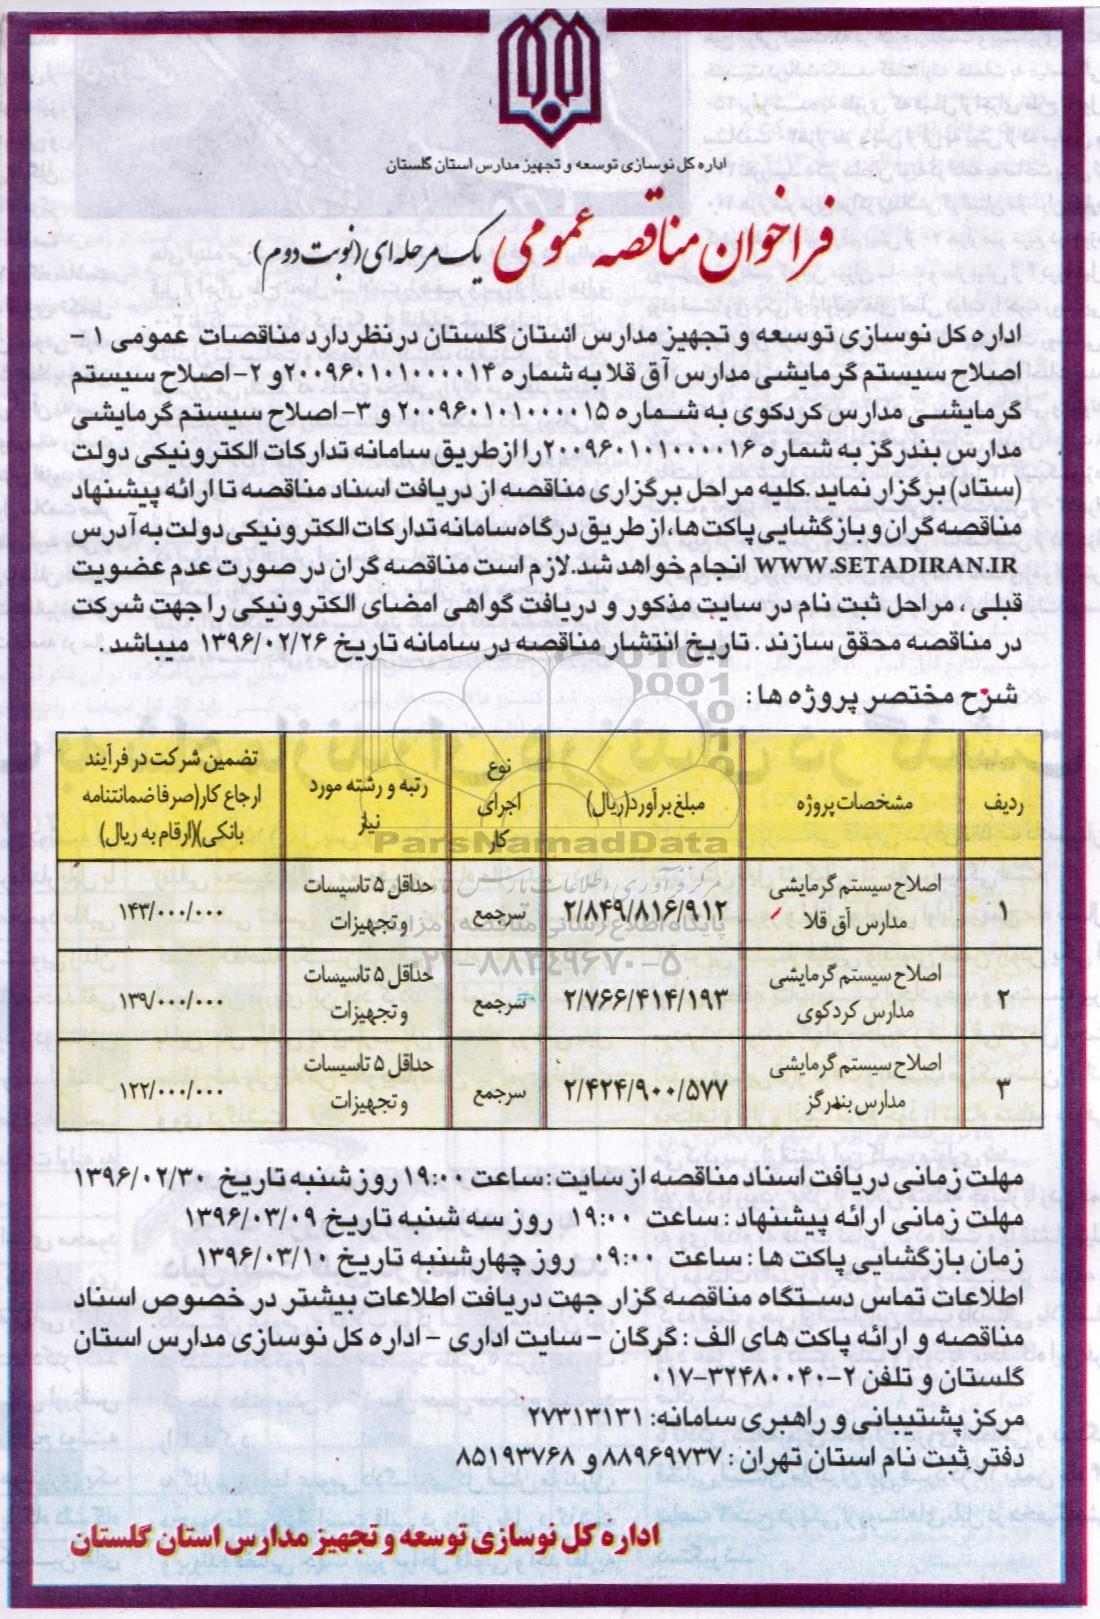 اداره کل نوسازی توسعه و تجهیز مدارس استان گلستان
فراخوان مناقصه عمومی یک مرحله ای (نوبت دوم)
اداره کل نوسازی توسعه و تجهیز مدارس استان گلستان در نظر دارد مناقصات عمومی ۱ -
اصلاح سیستم گرمایشی مدارس آق قلا به شماره ۲۰۰۹۶۰۱۰۱۰۰۰۰۱۴و ۲- اصلاح سیستم
گرمایشی مدارس کردکوی به شماره ۲۰۰۹۶۰۱۰۱۰۰۰۰۱۵ و ۳- اصلاح سیستم گرمایشی
مدارس بندرگز به شماره ۲۰۰۹۶۰۱۰۱۰۰۰۰۱۶را از طریق سامانه تدارکات الکترونیکی دولت
(ستاد) برگزار نماید .کلیه مراحل برگزاری مناقصه از دریافت اسناد مناقصه تا ارائه پیشنهاد
مناقصه گران و بازگشایی پاکت ها، از طریق درگاه سامانه تدارکات الکترونیکی دولت به آدرس
WWW.SETADIRAN.IR انجام خواهد شد.لازم است مناقصه گران در صورت عدم عضویت
قبلی ، مراحل ثبت نام در سایت مذکور و دریافت گواهی امضای الکترونیکی را جهت شرکت
در مناقصه محقق سازند . تاریخ انتشار مناقصه در سامانه تاریخ ۱۳۹۶/۰۲/۲۶ میباشد .
شرح مختصر پروژه ها :
ردیف | مشخصات پروژه | مبلغ برآورد(ریال) | نوع اجرای کار | رتبه و رشته مورد نیاز | تضمین شرکت در فرآیند ارجاع کار(صرفا ضمانتنامه بانکی)(ارقام به ریال)
۱ | اصلاح سیستم گرمایشی مدارس آق قلا | ۲/۸۴۹/۸۱۶/۹۱۲ | سرجمع | حداقل ۵ تاسیسات و تجهیزات | ۱۴۳/۰۰۰/۰۰۰
۲ | اصلاح سیستم گرمایشی مدارس کردکوی | ۲/۷۶۶/۴۱۴/۱۹۳ | سرجمع | حداقل ۵ تاسیسات و تجهیزات | ۱۳۹/۰۰۰/۰۰۰
۳ | اصلاح سیستم گرمایشی مدارس بندرگز | ۲/۴۲۴/۹۰۰/۵۷۷ | سرجمع | حداقل ۵ تاسیسات و تجهیزات | ۱۲۲/۰۰۰/۰۰۰
ParsNamadData
مهلت زمانی دریافت اسناد مناقصه از سایت :ساعت ۱۹:۰۰ روز شنبه تاریخ ۱۳۹۶/۰۲/۳۰
مهلت زمانی ارائه پیشنهاد : ساعت ۱۹:۰۰ روز سه شنبه تاریخ ۱۳۹۶/۰۳/۰۹
زمان بازگشایی پاکت ها : ساعت ۰۹:۰۰ روز چهارشنبه تاریخ ۱۳۹۶/۰۳/۱۰
اطلاعات تماس دستگاه مناقصه گزار جهت دریافت اطلاعات بیشتر در خصوص اسناد
مناقصه و ارائه پاکت های الف : گرگان - سایت اداری - اداره کل نوسازی مدارس استان
گلستان و تلفن ۲-۳۲۴۸۰۰۴۰-۰۱۷
مرکز پشتیبانی و راهبری سامانه: ۲۷۳۱۳۱۳۱
دفتر ثبت نام استان تهران : ۸۸۹۶۹۷۳۷ و ۸۵۱۹۳۷۶۸
اداره کل نوسازی توسعه و تجهیز مدارس استان گلستان